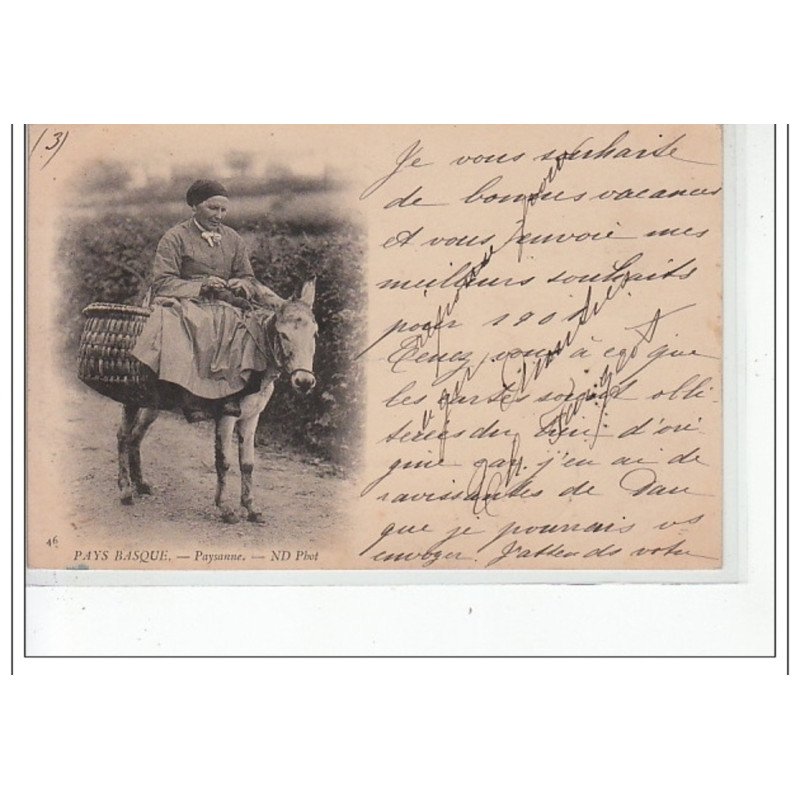 (3)
Je vous souhaite
de bonnes vacances
et vous envoie mes
meilleurs souhaits
pour 1901
Tenez vous à ce que
les cartes soient obli-
térées du lieu d'ori-
gine car j'en ai de
ravissantes de Dax
que je pourrais vs
envoyer. J'attends votre
réponse pour
46
PAYS BASQUE. — Paysanne. — ND Phot